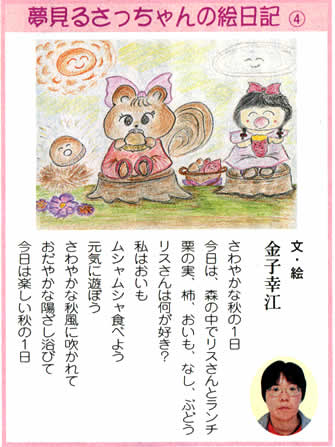 夢見るさっちゃんの絵日記 ④
文・絵
金子幸江
さわやかな秋の1日
今日は、森の中でリスさんとランチ
栗の実、柿、おいも、なし、ぶどう
リスさんは何が好き?
私はおいも
ムシャムシャ食べよう
元気に遊ぼう
さわやかな秋風に吹かれて
おだやかな陽ざし浴びて
今日は楽しい秋の1日